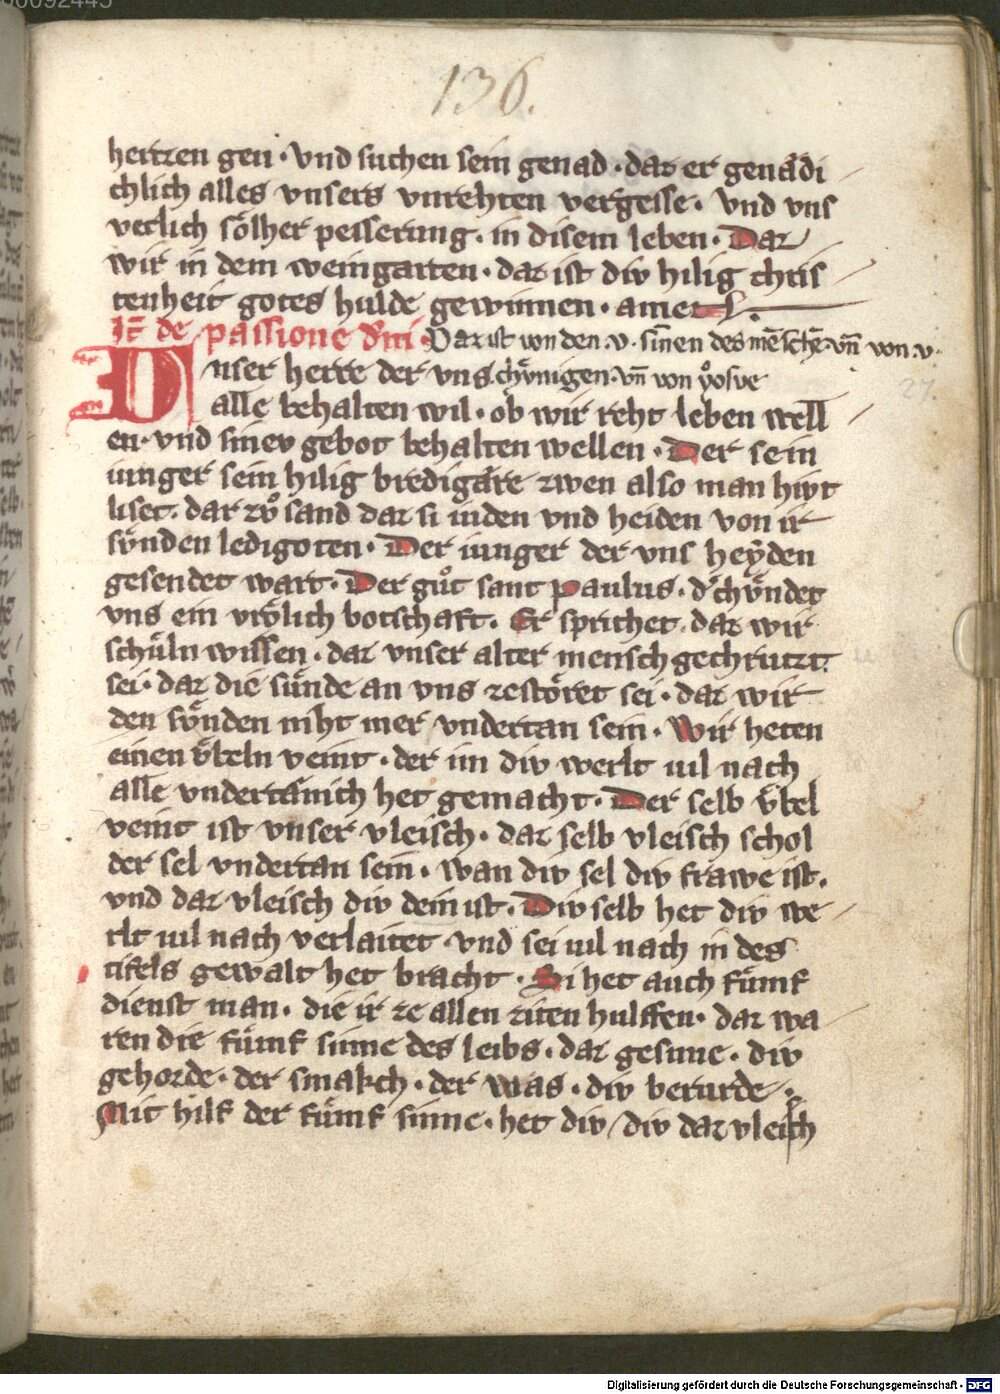 00092445
136.
hertzen gen · vnd suchen sein genad · daz er genådi
chlich alles vnsers vnrehten vergesse · vnd vns
verlich sölher pesserung · in disem leben · Daz
wir in dem weingarten · daz ist div hilig chris
tenheit gotes hulde gewinnen · amen.
It̄ de passione dn̄i · Daz ist von den ·v· sinnen des mēschē · vn̄ von ·v·
nser herre der vns chv̈nigen · vn̄ von yosve
27.
alle behalten wil · ob wir reht leben well
en · vnd sinev gebot behalten wellen · Der sein
iunger sein hilig bredigåre zwen also man hivt
liset · dar zvͦ sand daz si iuden vnd heiden von ir
sv̈nden ledigoten · Der iunger der vns heÿden
gesendet wart · Der guͦt sant paulus · d' chv̈ndet
vns ein vrölich botschaft · Er sprichet · daz wir
schüln wissen · daz vnser alter mensch gechrutzt
sei · daz die sünde an vns zestöret sei · daz wir
den sv̈nden niht mer vndertan sein · Wir heten
einen v̈beln veint · der im div werlt vil nach
alle vndertånich het gemacht · Der selb v̈bel
veint ist vnser vleisch · daz selb vleisch schol
der sel vndertan sein · wan div sel div frawe ist ·
vnd daz vleisch div dein ist · Div selb het div we
rlt vil nach verlaitet · vnd sei vil nach in des
tifels gewalt het bracht · Si het auch fümf
dienst man · die ir ze allen ziten hulffen · daz wa
ren die fümf sinne des leibs · daz gesune · div
gehorde · der smakch · der was · div berurde ·
Mit hilf der fümf sinne · het div div daz vleisch
Digitalisierung gefördert durch die Deutsche Forschungsgemeinschaft - DFG